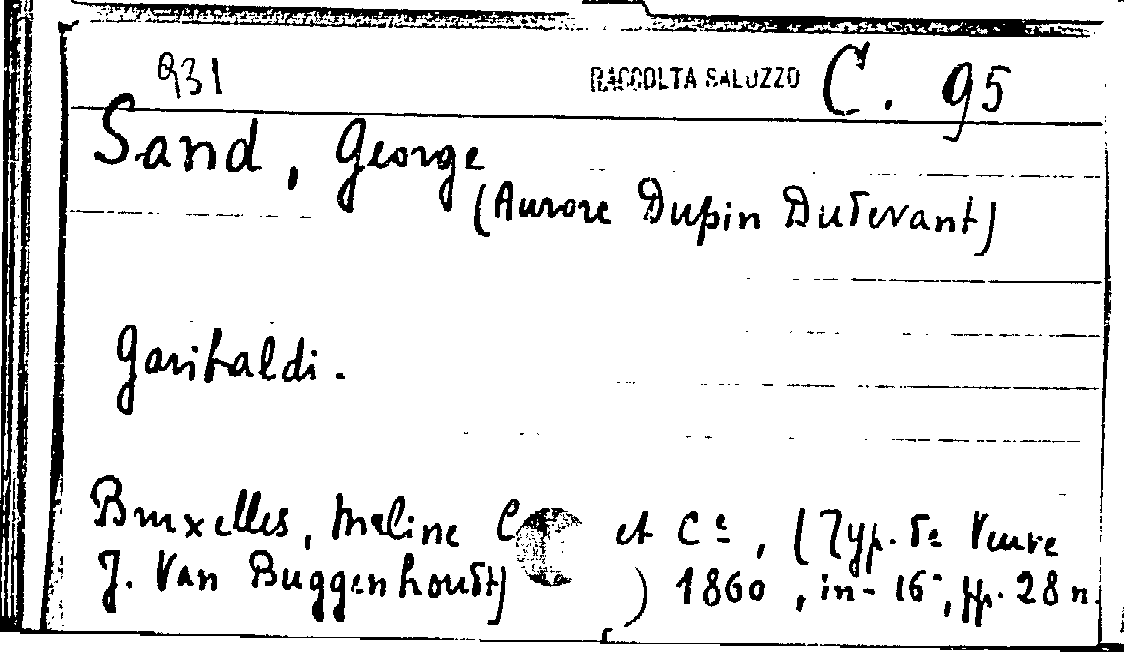 931 RACCOLTA SALUZZO C. 95
Sand, George
(Aurore Dupin Dudevant)
Garibaldi.
Bruxelles, Meline C et Cᵉ, (Typ. de Veuve
J. Van Buggenhoudt) ) 1860, in-16°, pp. 28 n.